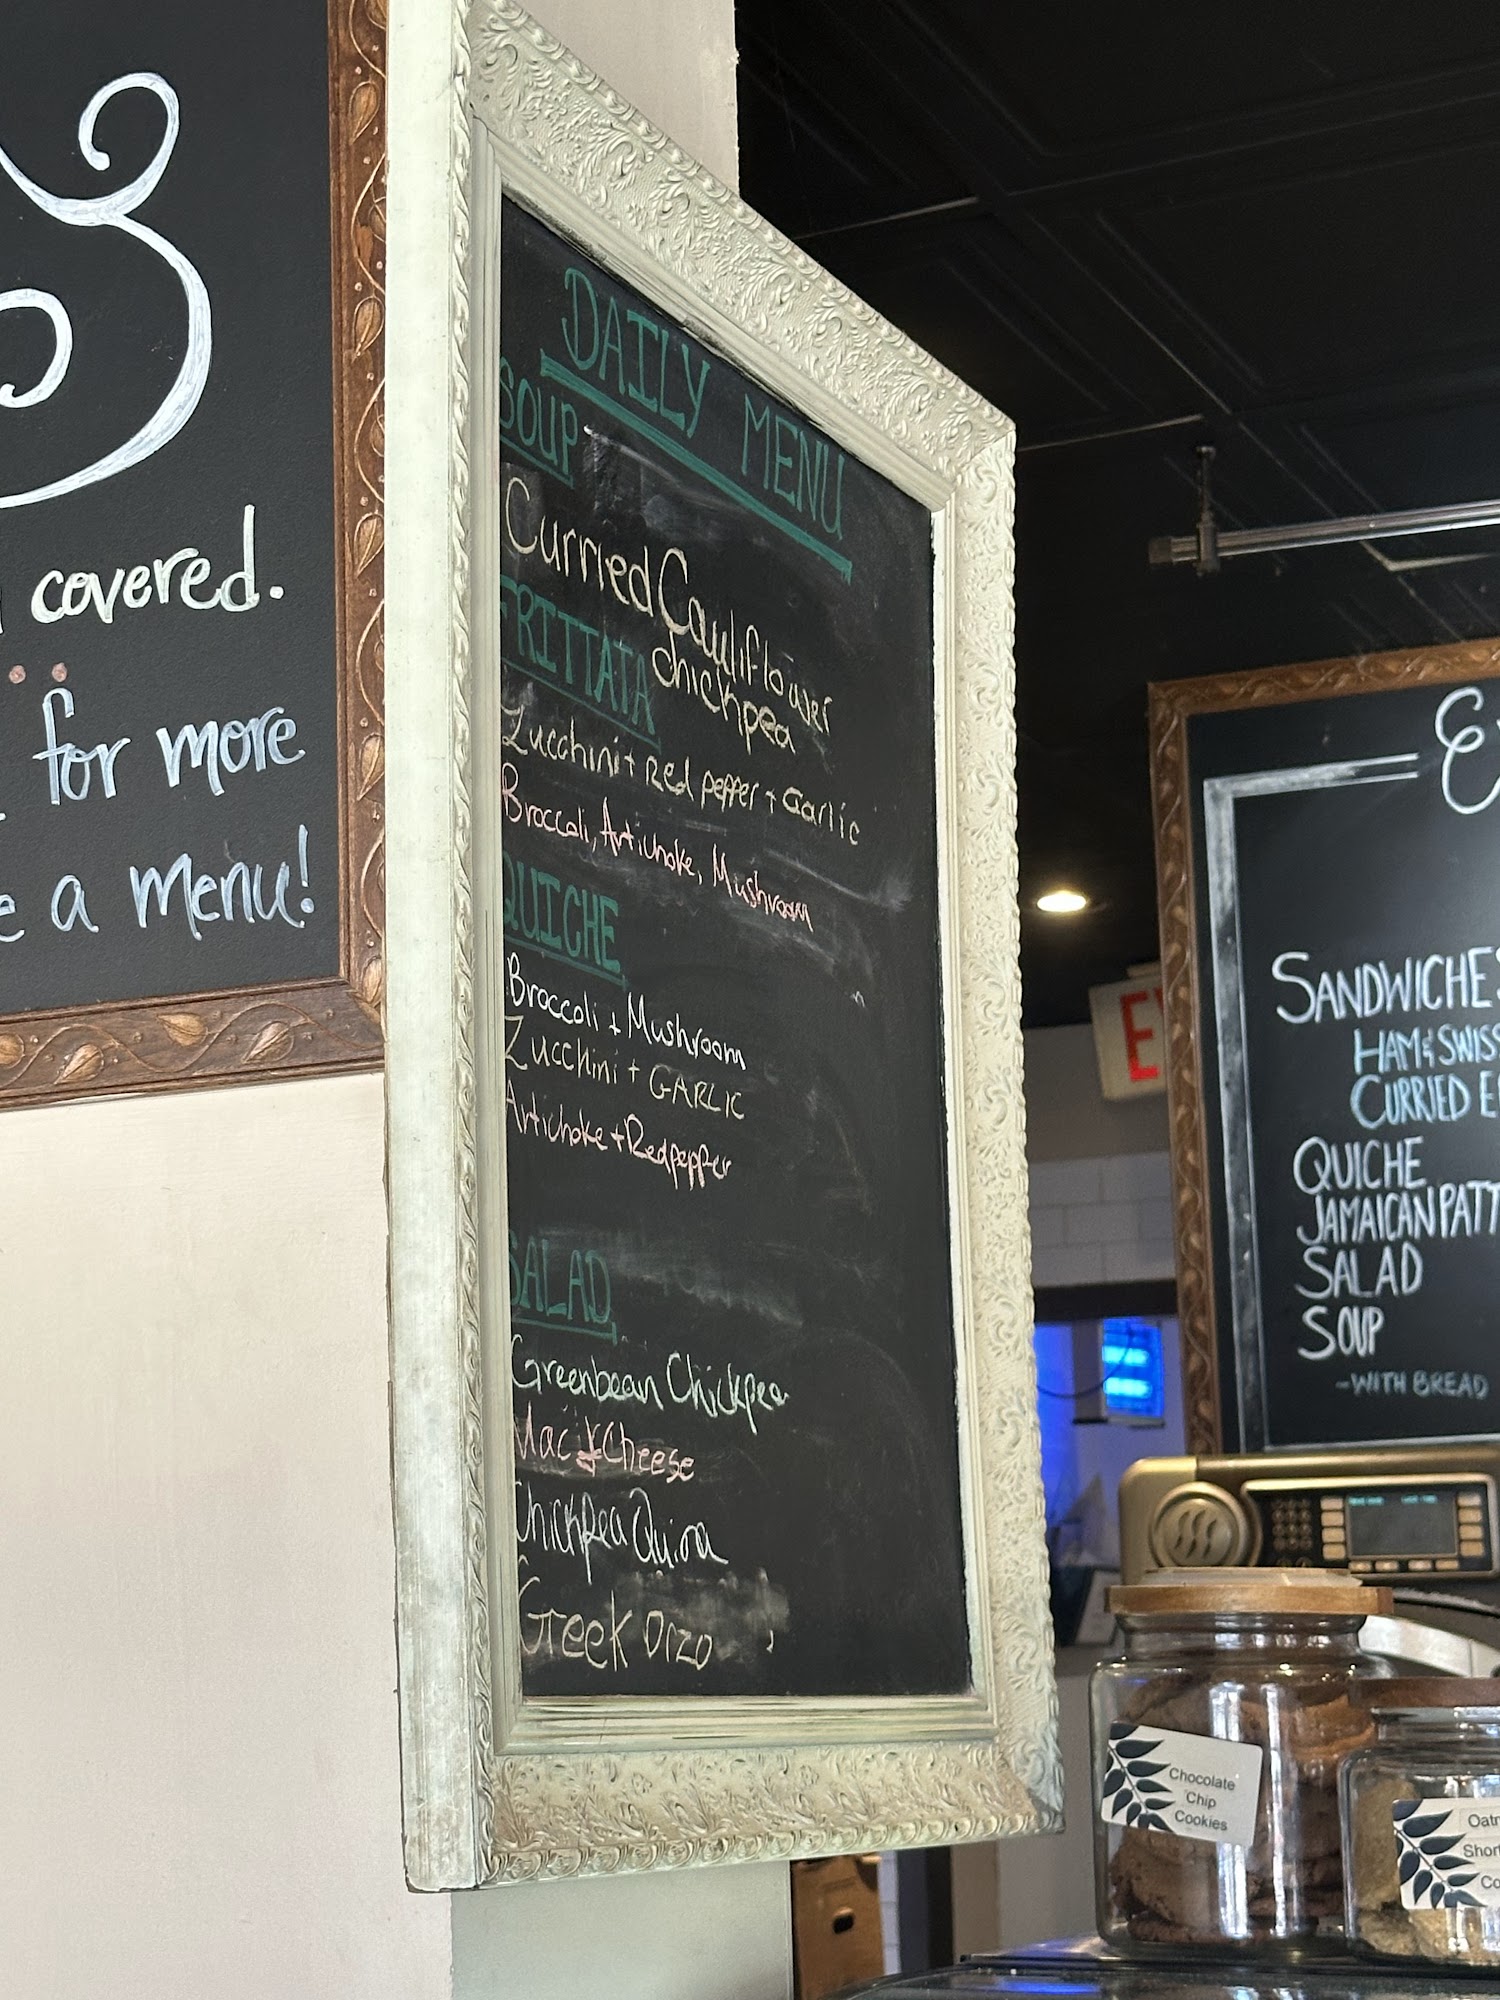 covered.
for more
a menu!
DAILY MENU
SOUP
Curried Cauliflower
chickpea
FRITTATA
Zucchini + Red pepper + Garlic
Broccoli, Artichoke, Mushroom
QUICHE
Broccoli + Mushroom
Zucchini + GARLIC
Artichoke + Redpepper
SALAD
Greenbean Chickpea
Mac & Cheese
Chickpea Quinoa
Greek Orzo
SANDWICHES
HAM & SWISS
CURRIED
QUICHE
JAMAICAN
SALAD
SOUP
-WITH BREAD
Chocolate
Chip
Cookies